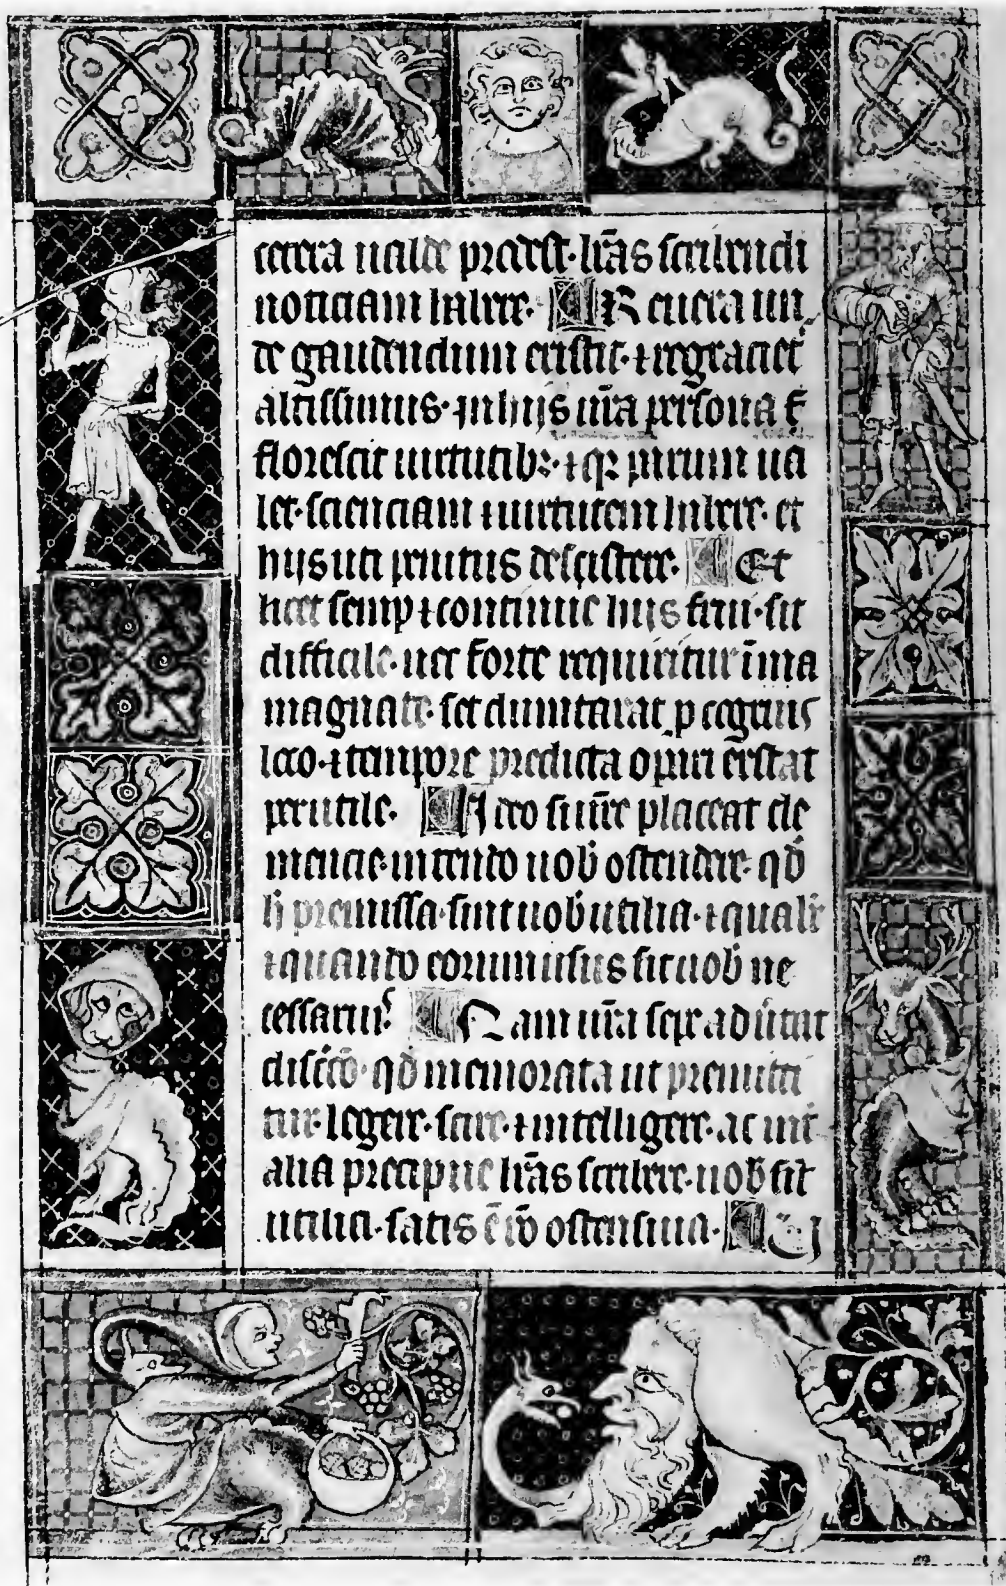 cetera ualde prodest· l̃ras scribendi
noticiam habere· Re euera un
de gaudendum existit· ⁊ regraciet᷑
altissimus· in huiꝰ ur̃a persona
florescit uirtutibꝫ· ⁊ qꝫ parum ua
let· scienciam ⁊ uirtutem habere· et
hijs uti penitus desistere· Et
licet semꝑ ⁊ continue hijs frui· sit
difficile· nec forte requiritur ĩ una
magnate· set dumtaxat ꝓ
loco· ⁊ tempore predicta operi extat
perutile· Ideo placeat cle
mencie· intendo uob̃ ostendere· qđ
h̃ premissa· sint uob̃ utilia· ⁊ qualit̃
⁊ quando eorum usus sit uob̃ ne
cessariuꝰ· Nam ur̃a sepe aduertit
discrc̃o· qđ memorata ut premitti
tur· legere· scire· ⁊ intelligere· ac int̃
alia precipue l̃ras scribere· uob̃ sit
utilia· satis ostensiua·